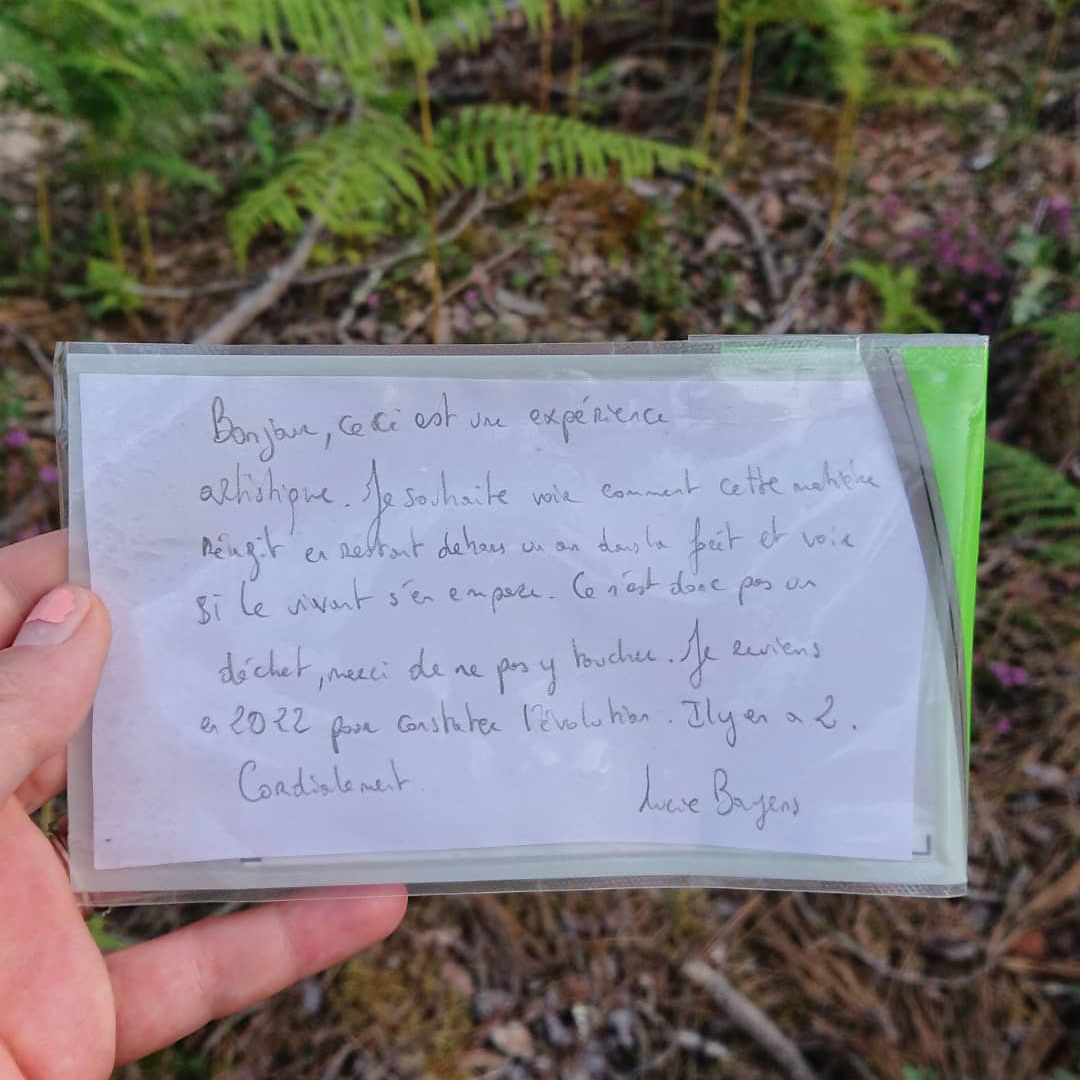 Bonjour, ceci est une expérience
artistique. Je souhaite voir comment cette matière
réagit en restant dehors un an dans la forêt et voir
si le vivant s'en empare. Ce n'est donc pas un
déchet, merci de ne pas y toucher. Je reviens
en 2022 pour constater l'évolution. Il y en a 2.
Cordialement.
Lucie Bayens